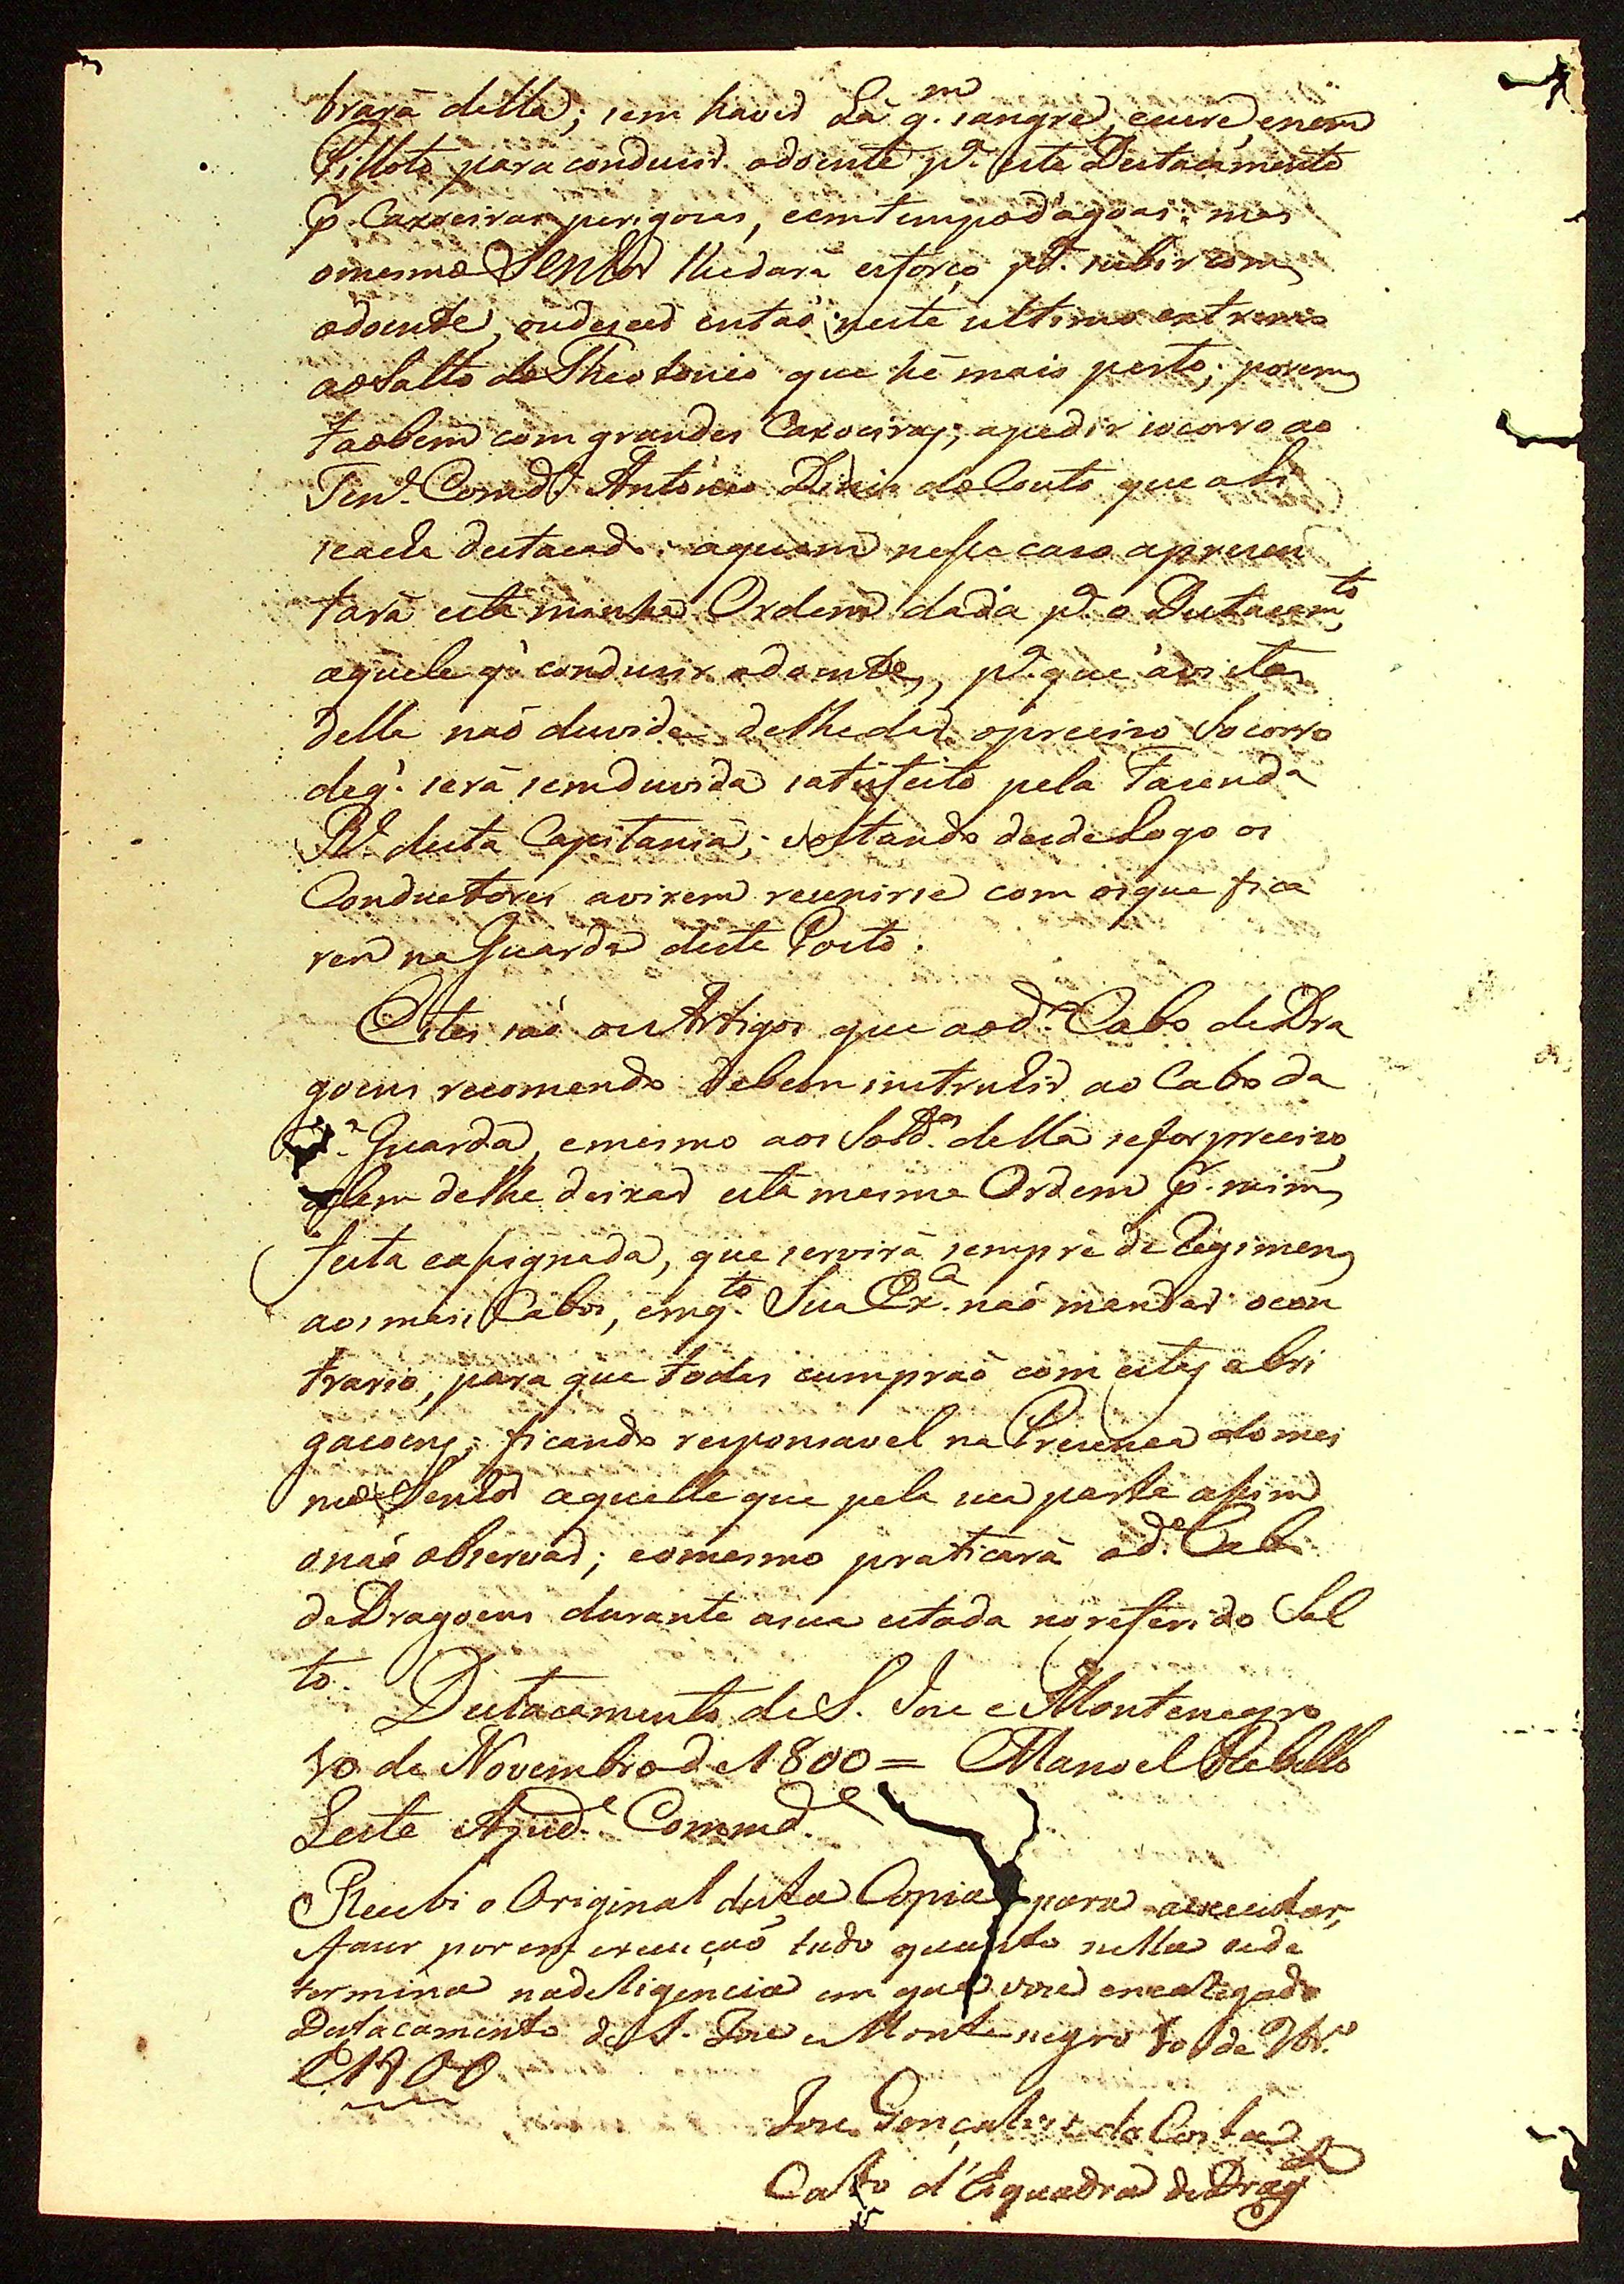 brará della; sem haver Lá q.m sangre, ecure, enem
Pilloto para conduzir odoente p.a este Destacimento
p.r Caxoeiras perigozas, eemtempod'agoas: mas
omesmo Senhor lhedará esforço p.a subir com
odoente, oudescer então neste ultimo extremo
aoSalto doTheotonio que hé mais perto; porem
taobem com grandes Caxoeiras; apedir socorro ao
Ten.e Comd.e Antonio Diniz do Couto que ali
seacha destacado: aquem nesse cazo aprezen
tará esta minha Ordem dada p.a o Destacam.to
aquele q' conduzir odoente, p.a que ávista
della naõ duvide delhedar oprecizo Socorro
deq' será semduvida satisfeito pela Fazenda
R.l desta Capitania; voltando desdeLogo os
Conductores avirem reunirse com osque fica
rem naGuarda deste Porto.
Estes saõ os Artigos que aod.o Cabo deDra
goens recomendo debem instruhir ao Cabo da
d.a Guarda, emesmo aos Sold.os della seforprecizo,
alem delhe deixar esta mesma Ordem p.r mim
feita easignada, que servirá sempre de Regimen
aosmais Cabos, emq.to Sua Ex.a naõ mandar ocon
trario, para que todos cumpraõ com estas obri
gaçoens; ficando responsavel na Prezença domes
mo Senhor aquelle que pela sua parte assim
onaõ observar; eomesmo praticará od.o Cabo
deDragoens durante asua estada noreferido Sal
to. Destacamento de S. Joze e Montenegro
10 de Novembro de 1800 = Manoel Rebello
Leite Ajud.e Commd.e
Recebi o Original desta Copia para aexecutar,
efazer por em execuçaõ tudo quanto nella sede
termina nadeligencia em que vou encarregado
Destacamento de S. Joze e Montenegro 10 de 9br.o
de 1800
Joze Gonçalves da Costa
Cabo d'Esquadra de Drag